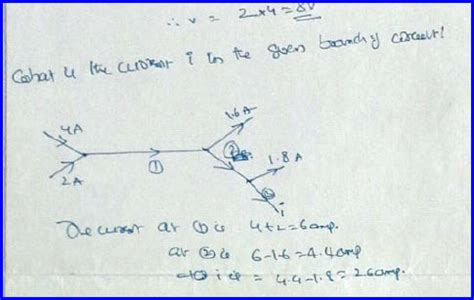 ∴ v = 2x4 = 8V
What is the current i in the given branch of circuit!
1.6A
4A
②
1.8A
①
2A
i
The current at ① is 4+2=6amp.
at ② is 6-1.6=4.4amp
i is = 4.4-1.8=2.6amp.